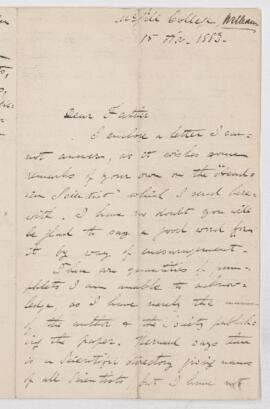 McGill College William
15 Nov. 1883.
Dear Father
I enclose a letter I can-
not answer, as it wishes some
remarks of your own on the "
Scientist" which I send here-
with. I have no doubt you will
be glad to say a good word for
it by way of encouragement.
There are quantities of pam-
phlets I am unable to acknow-
ledge, as I have merely the name
of the author & the Society publish-
ing the paper. says there
is a Scientific directory giving names
of all Scientists, but I have not